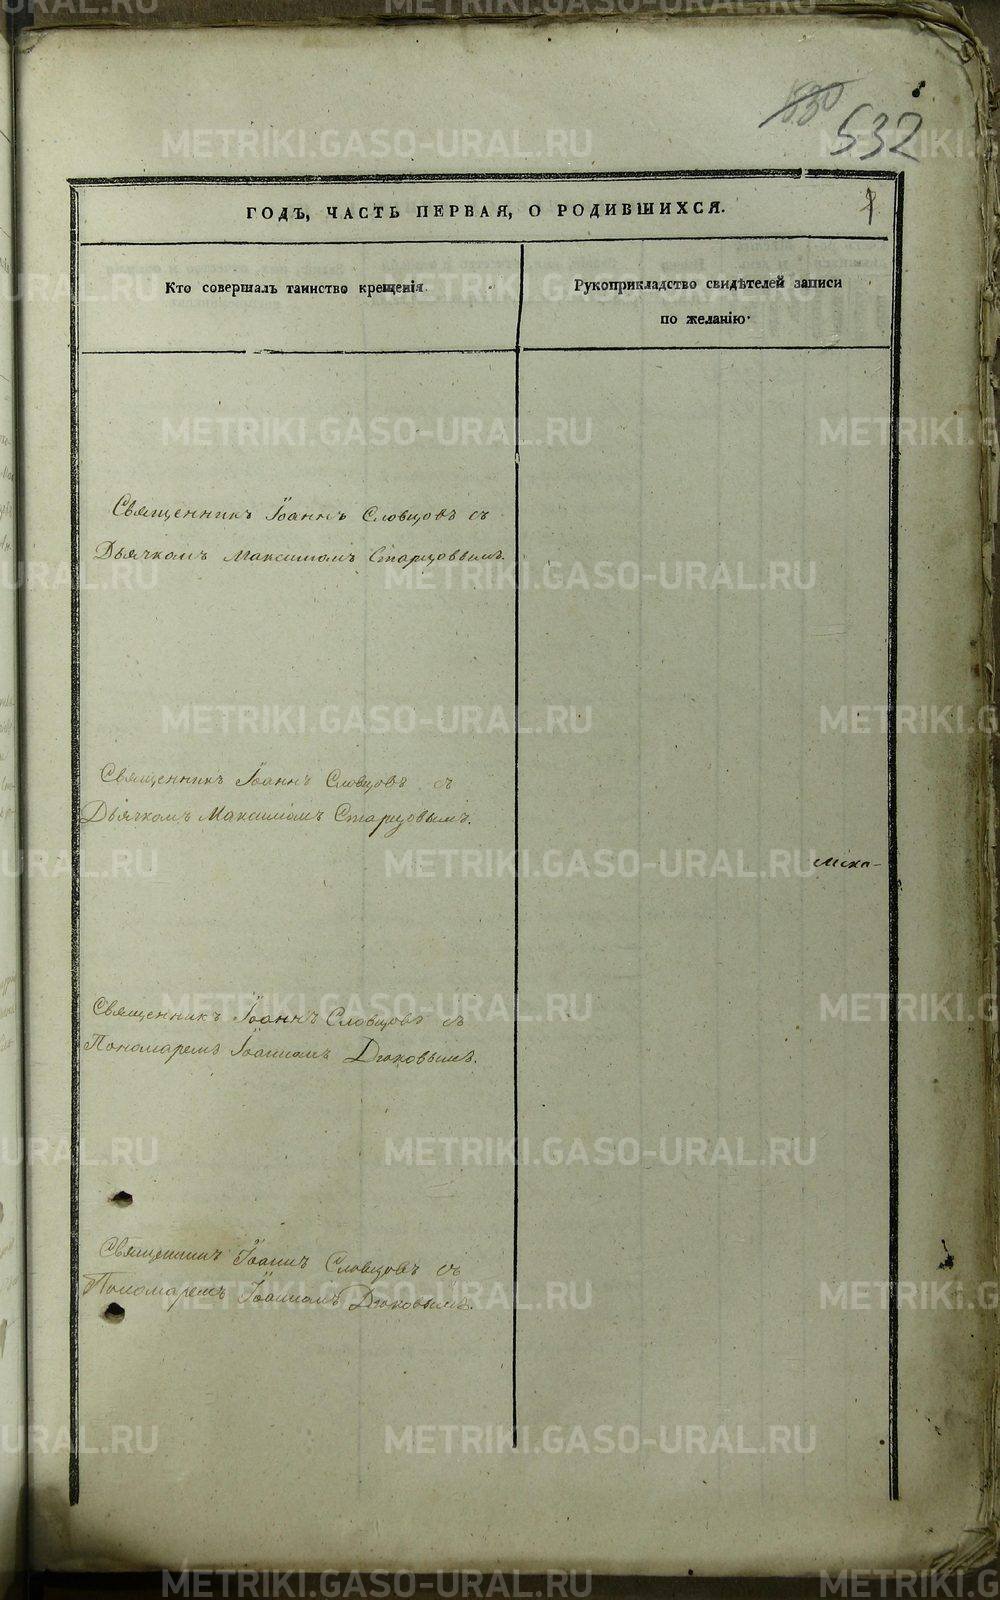 530
532
ГОДЪ, ЧАСТЬ ПЕРВАЯ, О РОДИВШИХСЯ.
1
Кто совершалъ таинство крещенія.
Рукоприкладство свидѣтелей записи
по желанію.
Священникъ Іоаннъ Словцовъ съ
Дьячкомъ Максимомъ Старцовымъ.
Священникъ Іоаннъ Словцовъ съ
Дьячкомъ Максимомъ Старцовымъ.
Священникъ Іоаннъ Словцовъ съ
Пономаремъ Іоанномъ Дюковымъ.
Священникъ Іоаннъ Словцовъ съ
Пономаремъ Іоанномъ Дюковымъ.
METRIKI.GASO-URAL.RU